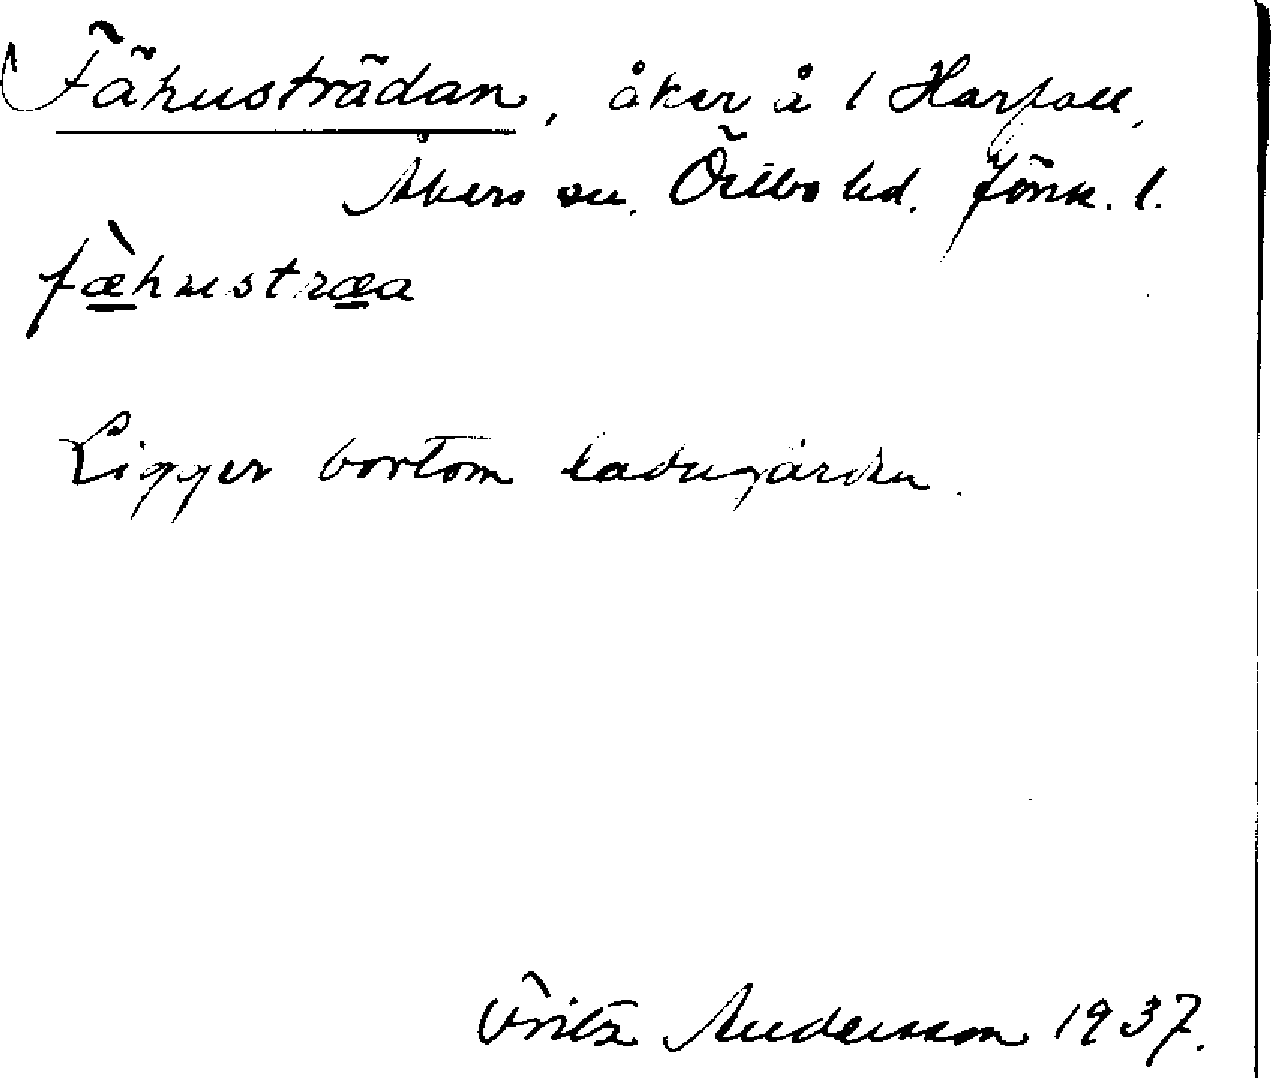 Fähusträdan, åker å 1 Harfall,
Åkers sn. Östbo hd. Jönk. l.
fæ̀hustræa
Ligger bortom ladugården.
Fritz Andersson 1937.